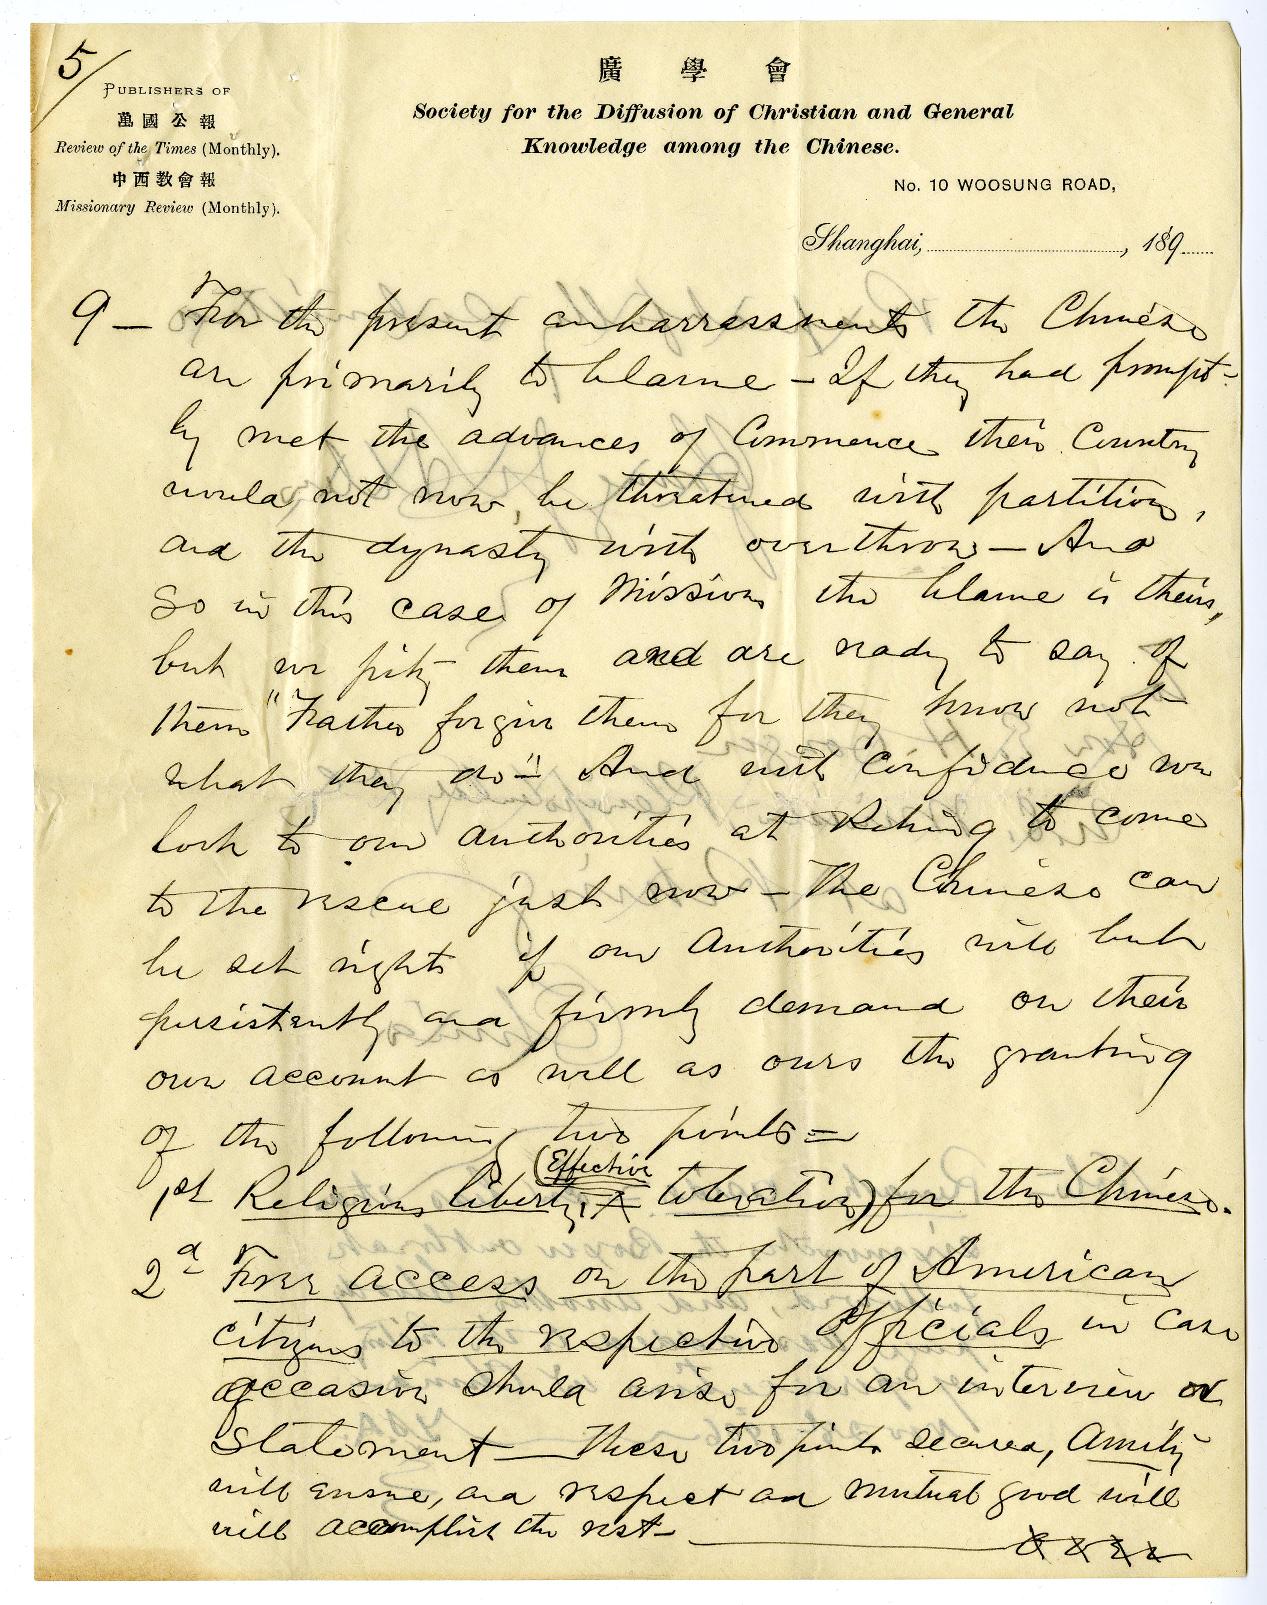 5/
PUBLISHERS OF
萬國公報
Review of the Times (Monthly).
中西教會報
Missionary Review (Monthly).
廣學會
Society for the Diffusion of Christian and General
Knowledge among the Chinese.
No. 10 WOOSUNG ROAD,
Shanghai, , 189
9 — For the present embarrassments the Chinese
are primarily to blame — If they had prompt-
ly met the advances of Commerce their Country
would not now be threatened with partition,
and the dynasty with overthrow — And
so in this case of Missions the blame is theirs,
but we pity them and are ready to say of
them "Father forgive them for they know not
what they do" And with confidence we
look to our authorities at Peking to come
to the rescue just now — The Chinese can
be set right if our Authorities will but
persistently and firmly demand on their
own account as well as ours the granting
of the following two points =
1st Religious liberty, (Effective toleration) for the Chinese.
2d Free access on the part of American
citizens to the respective Officials in case
occasion should arise for an interview or
statement — These two points secured, Amity
will ensue, and respect and mutual good will
will accomplish the rest —